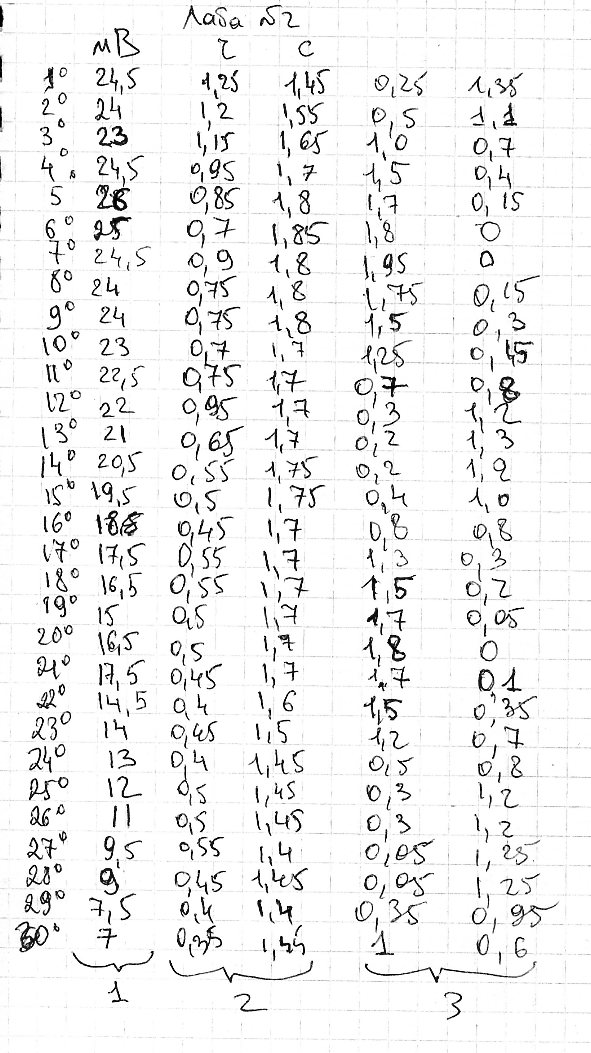 Лаба №2
мВ τ с
1° 24,5 1,25 1,45 0,25 1,35
2° 24 1,2 1,55 0,5 1,1
3° 23 1,15 1,65 1,0 0,7
4° 24,5 0,95 1,7 1,5 0,4
5 26 0,85 1,8 1,7 0,15
6° 25 0,7 1,85 1,8 0
7° 24,5 0,9 1,8 1,95 0
8° 24 0,75 1,8 1,75 0,15
9° 24 0,75 1,8 1,5 0,3
10° 23 0,7 1,7 1,25 0,45
11° 22,5 0,75 1,7 0,7 0,8
12° 22 0,95 1,7 0,3 1,2
13° 21 0,65 1,7 0,2 1,3
14° 20,5 0,55 1,75 0,2 1,2
15° 19,5 0,5 1,75 0,4 1,0
16° 0,45 1,7 0,8 0,8
17° 17,5 0,55 1,7 1,3 0,3
18° 16,5 0,55 1,7 1,5 0,2
19° 15 0,5 1,7 1,7 0,05
20° 16,5 0,5 1,7 1,8 0
21° 17,5 0,45 1,7 1,7 0,1
22° 14,5 0,4 1,6 1,5 0,35
23° 14 0,45 1,5 1,2 0,7
24° 13 0,4 1,45 0,5 0,8
25° 12 0,5 1,45 0,3 1,2
26° 11 0,5 1,45 0,3 1,2
27° 9,5 0,55 1,4 0,05 1,25
28° 9 0,45 1,45 0,05 1,25
29° 7,5 0,4 1,4 0,35 0,95
30° 7 0,35 1,45 1 0,6
1 2 3